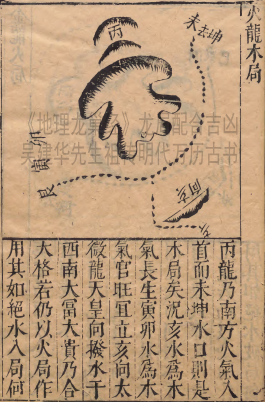 火龍木局
未去坤
丙
艮寅卯
向亥
《地理龙
配合吉凶
吴建华先生祖
明代万历古书
丙龍乃南方火氣入
首而未坤水口則是
木局矣況亥水為木
氣長生寅卯水為木
氣官旺宜立亥向太
微龍天皇向撥水于
西南大富大貴乃合
大格若仍以火局作
用其如絕水入局何